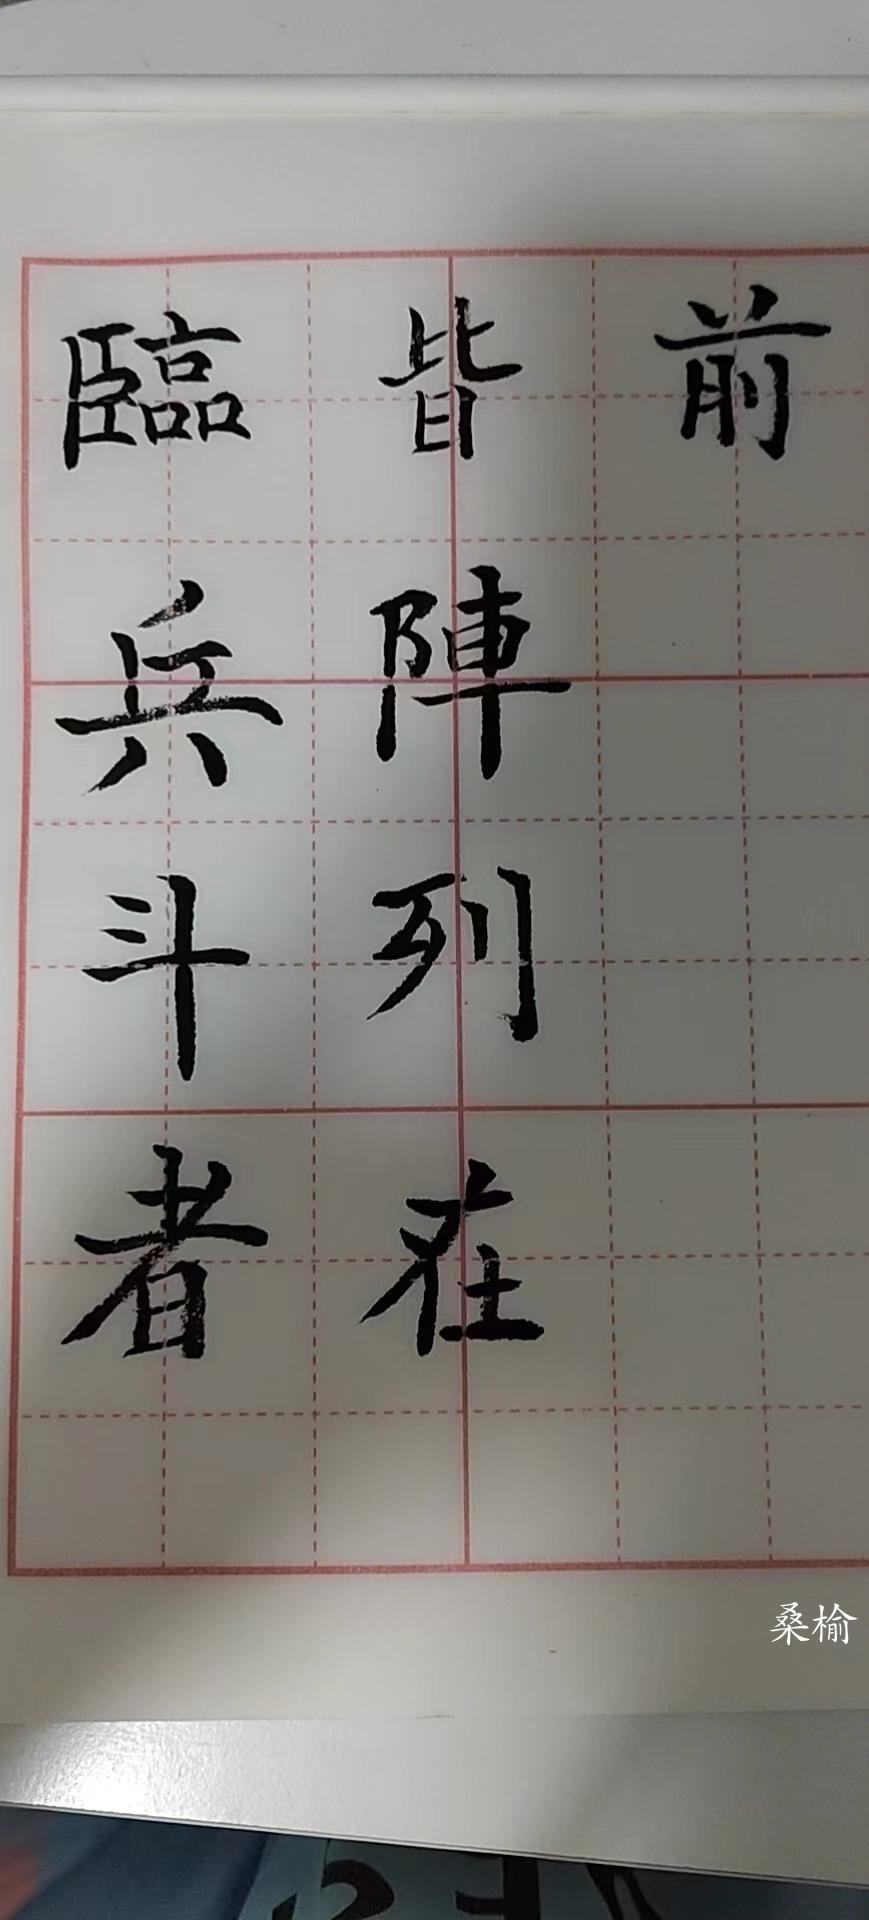 臨兵斗者
皆陣列在
前
桑榆